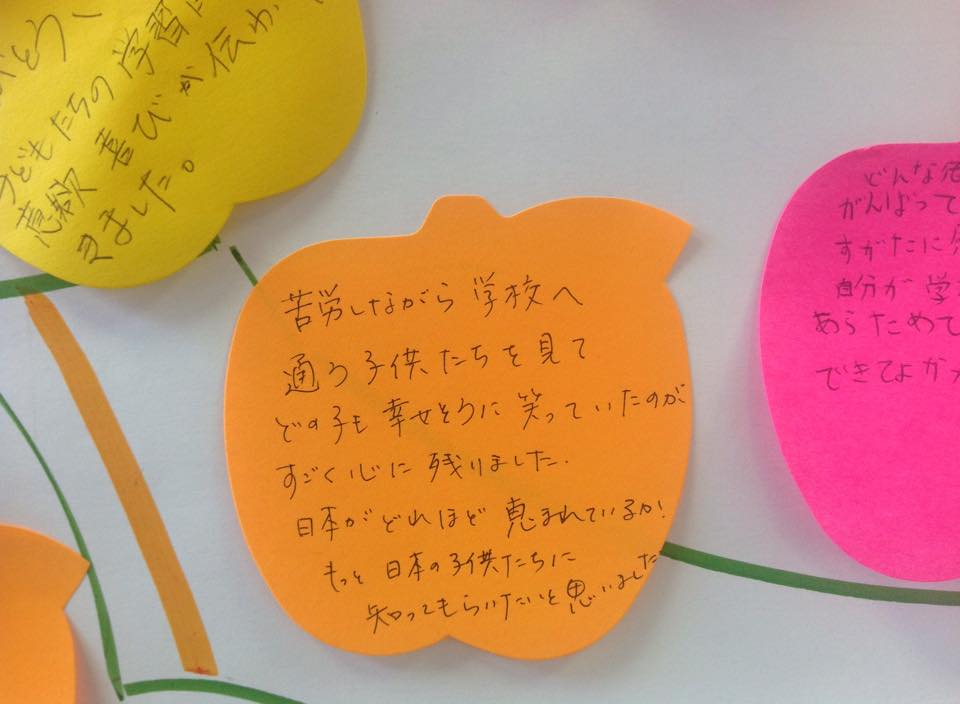 子どもたちの学習
意欲 喜びが伝わ
きました。
苦労しながら学校へ
通う子供たちを見て
どの子も幸せそうに笑っていたのが
すごく心に残りました.
日本がどれほど恵まれているか!
もっと日本の子供たちに
知ってもらいたいと思いました
どんな
がんばって
すがたに
自分が学
あらためて
できてよかっ